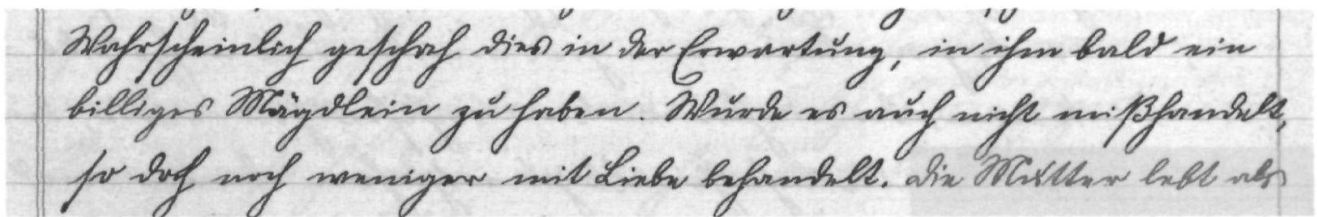 Wahrscheinlich geschah dies in der Erwartung, in ihm bald ein
billiges Mägdlein zu haben. Wurde es auch nicht mißhandelt,
so doch noch weniger mit Liebe behandelt. Die Mutter lebt als